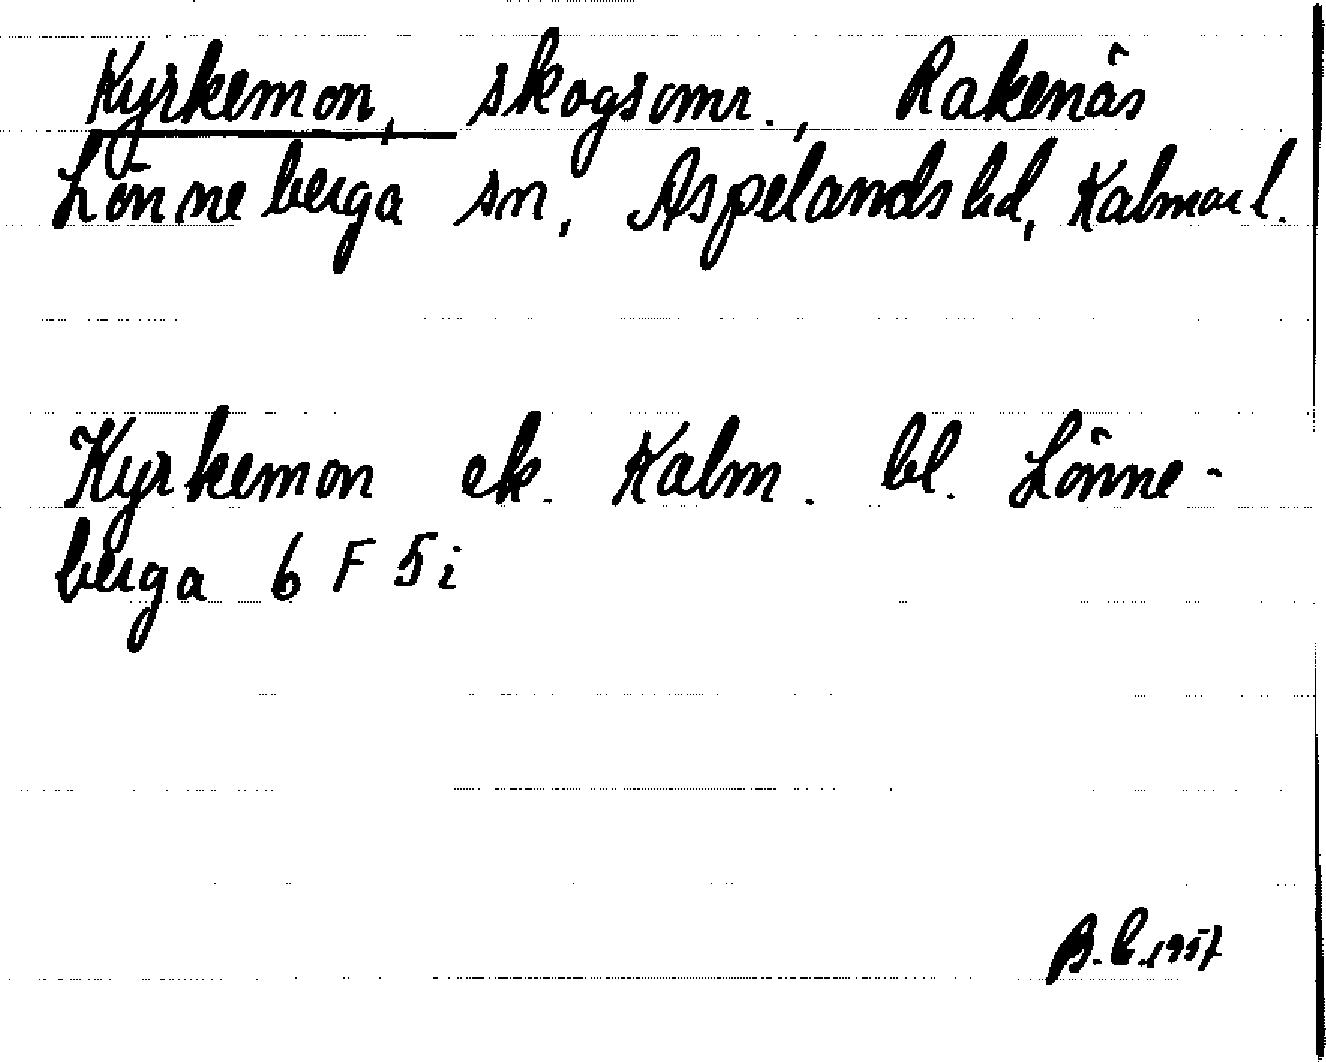 Kyrkemon, skogsomr., Rakenäs
Lönneberga sn, Aspelands hd, Kalmar l.
Kyrkemon ek. Kalm. bl. Lönne-
berga 6 F 5 i
B.C. 1957